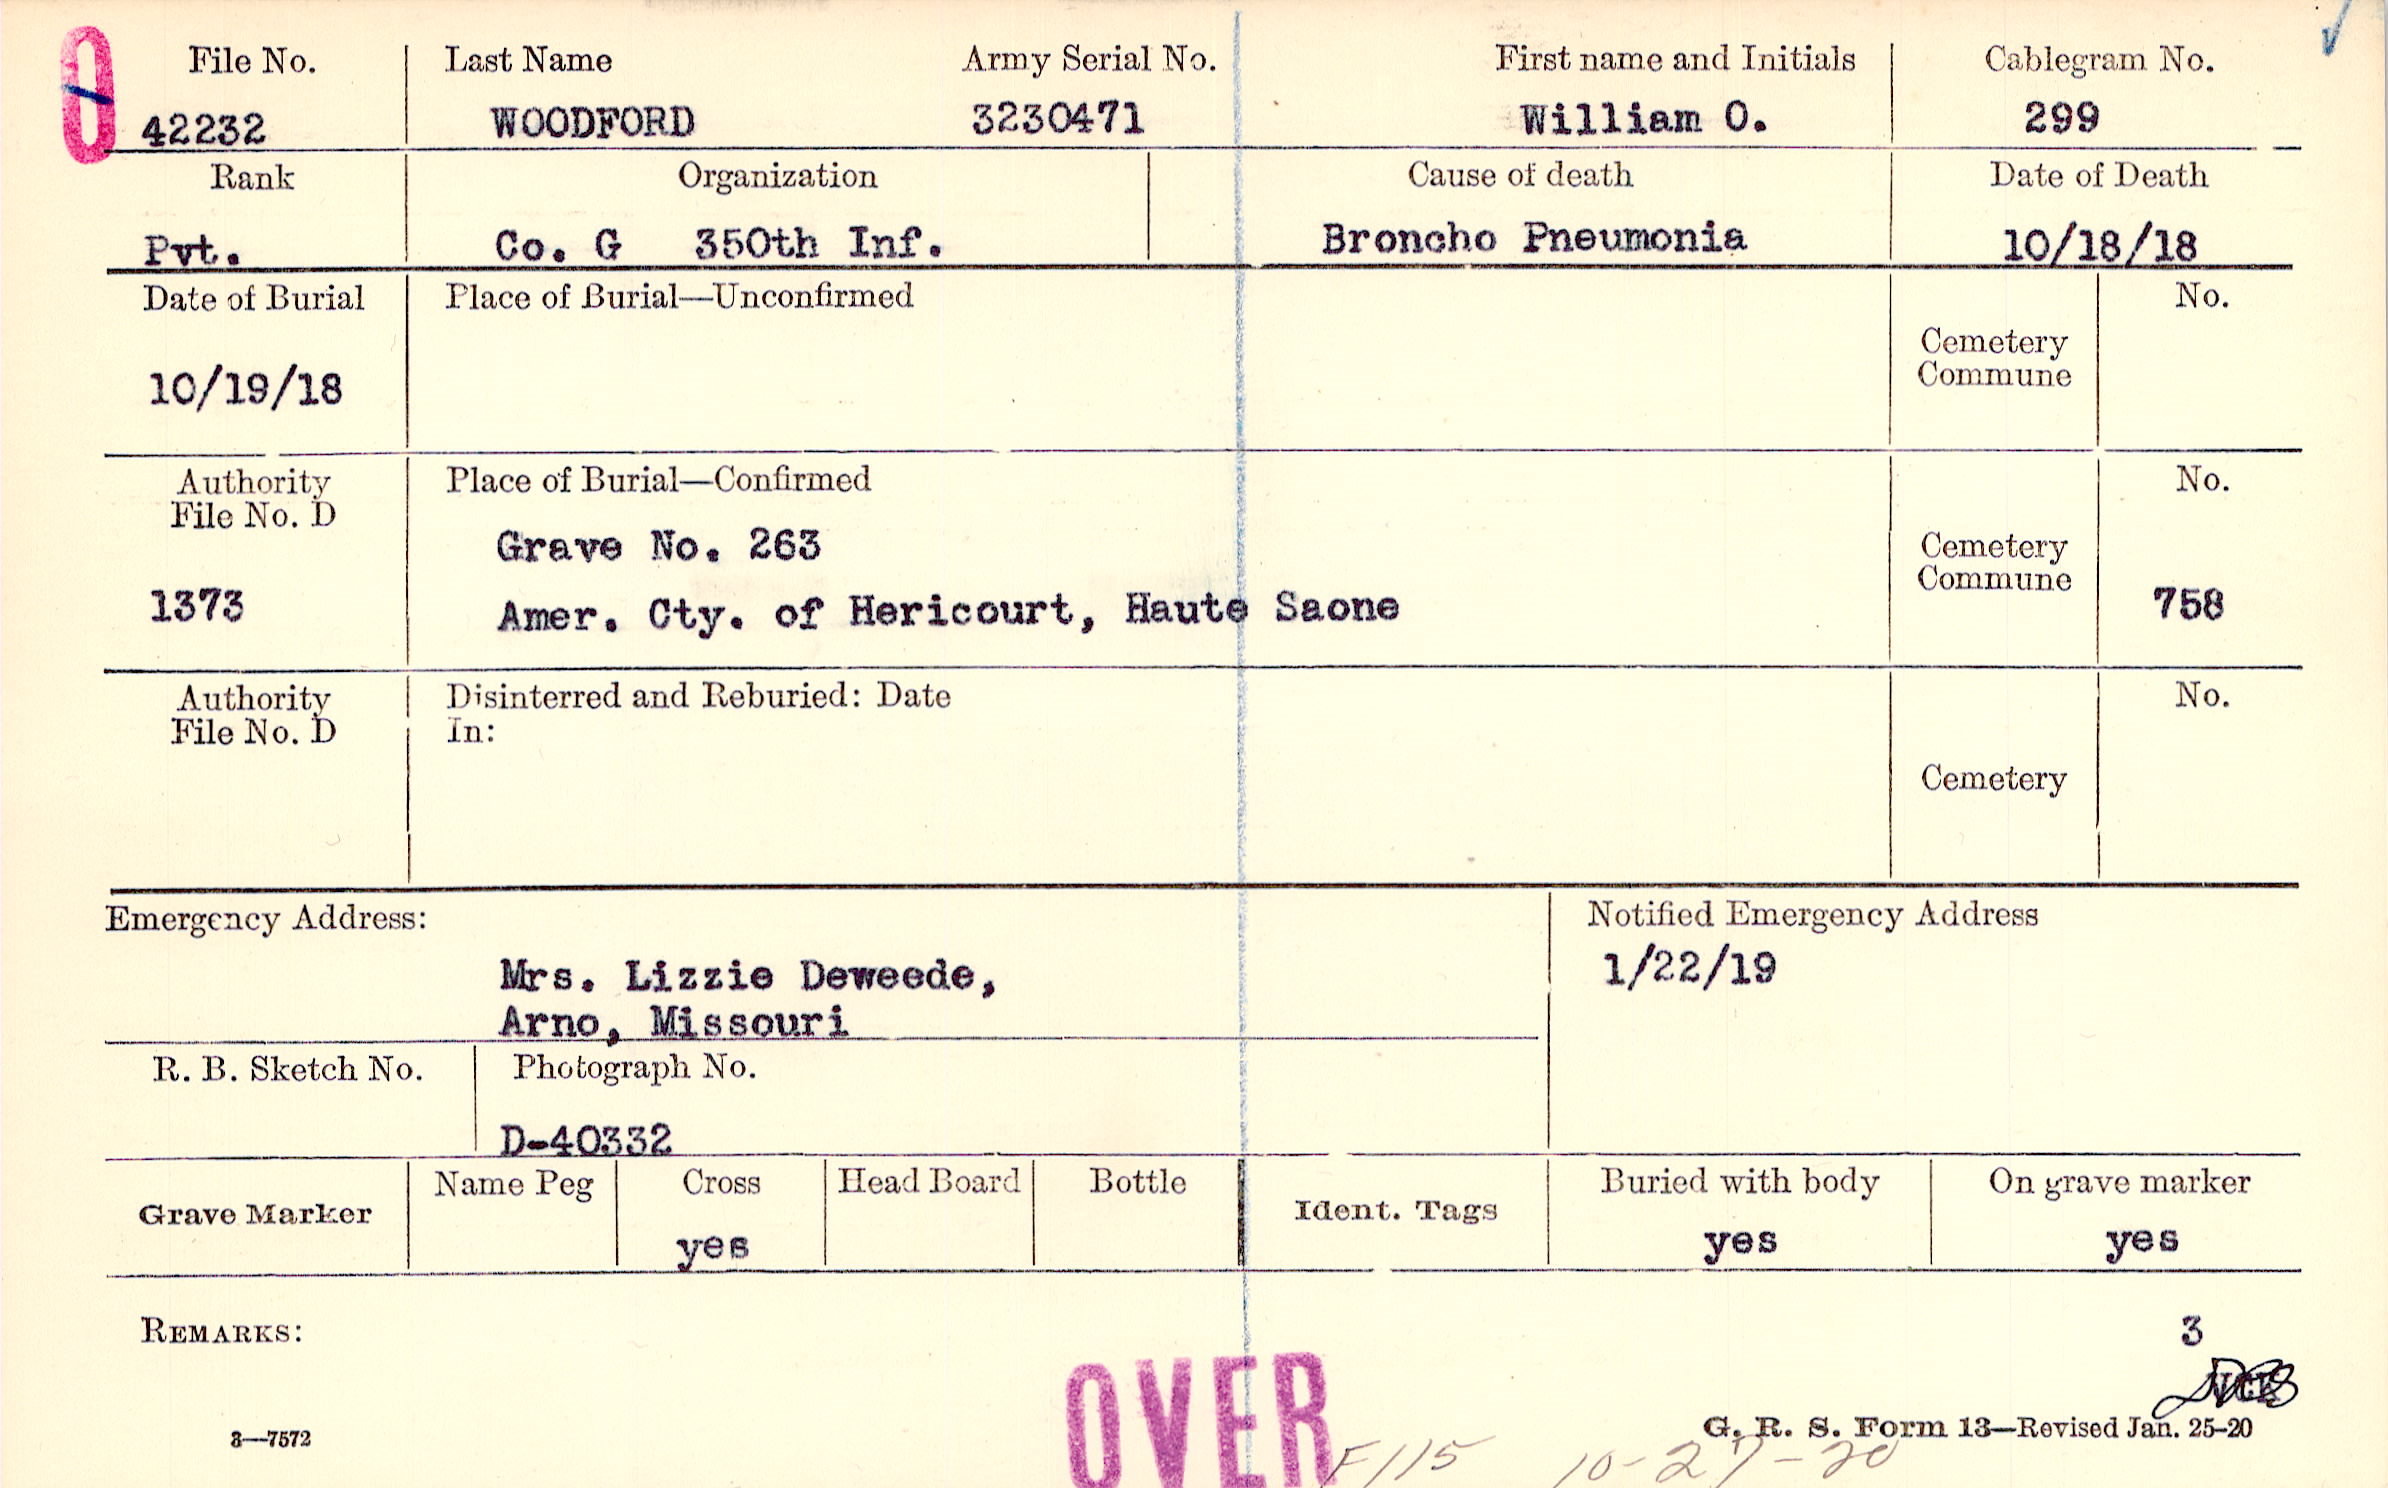 0
File No. Last Name Army Serial No. First name and Initials Cablegram No.
42232 WOODFORD 3230471 William O. 299
Rank Organization Cause of death Date of Death
Pvt. Co. G 350th Inf. Broncho Pneumonia 10/18/18
Date of Burial Place of Burial—Unconfirmed No.
Cemetery
Commune
10/19/18
Authority Place of Burial—Confirmed No.
File No. D
Grave No. 263 Cemetery
Commune
1373 Amer. Cty. of Hericourt, Haute Saone 758
Authority Disinterred and Reburied: Date No.
File No. D In:
Cemetery
Emergency Address: Notified Emergency Address
Mrs. Lizzie Deweede, 1/22/19
Arno, Missouri
R. B. Sketch No. Photograph No.
D-40332
Name Peg Cross Head Board Bottle Buried with body On grave marker
Grave Marker Ident. Tags
yes yes yes
REMARKS: 3
OVER
3—7572 G. R. S. Form 13—Revised Jan. 25-20
F115 10-27-20